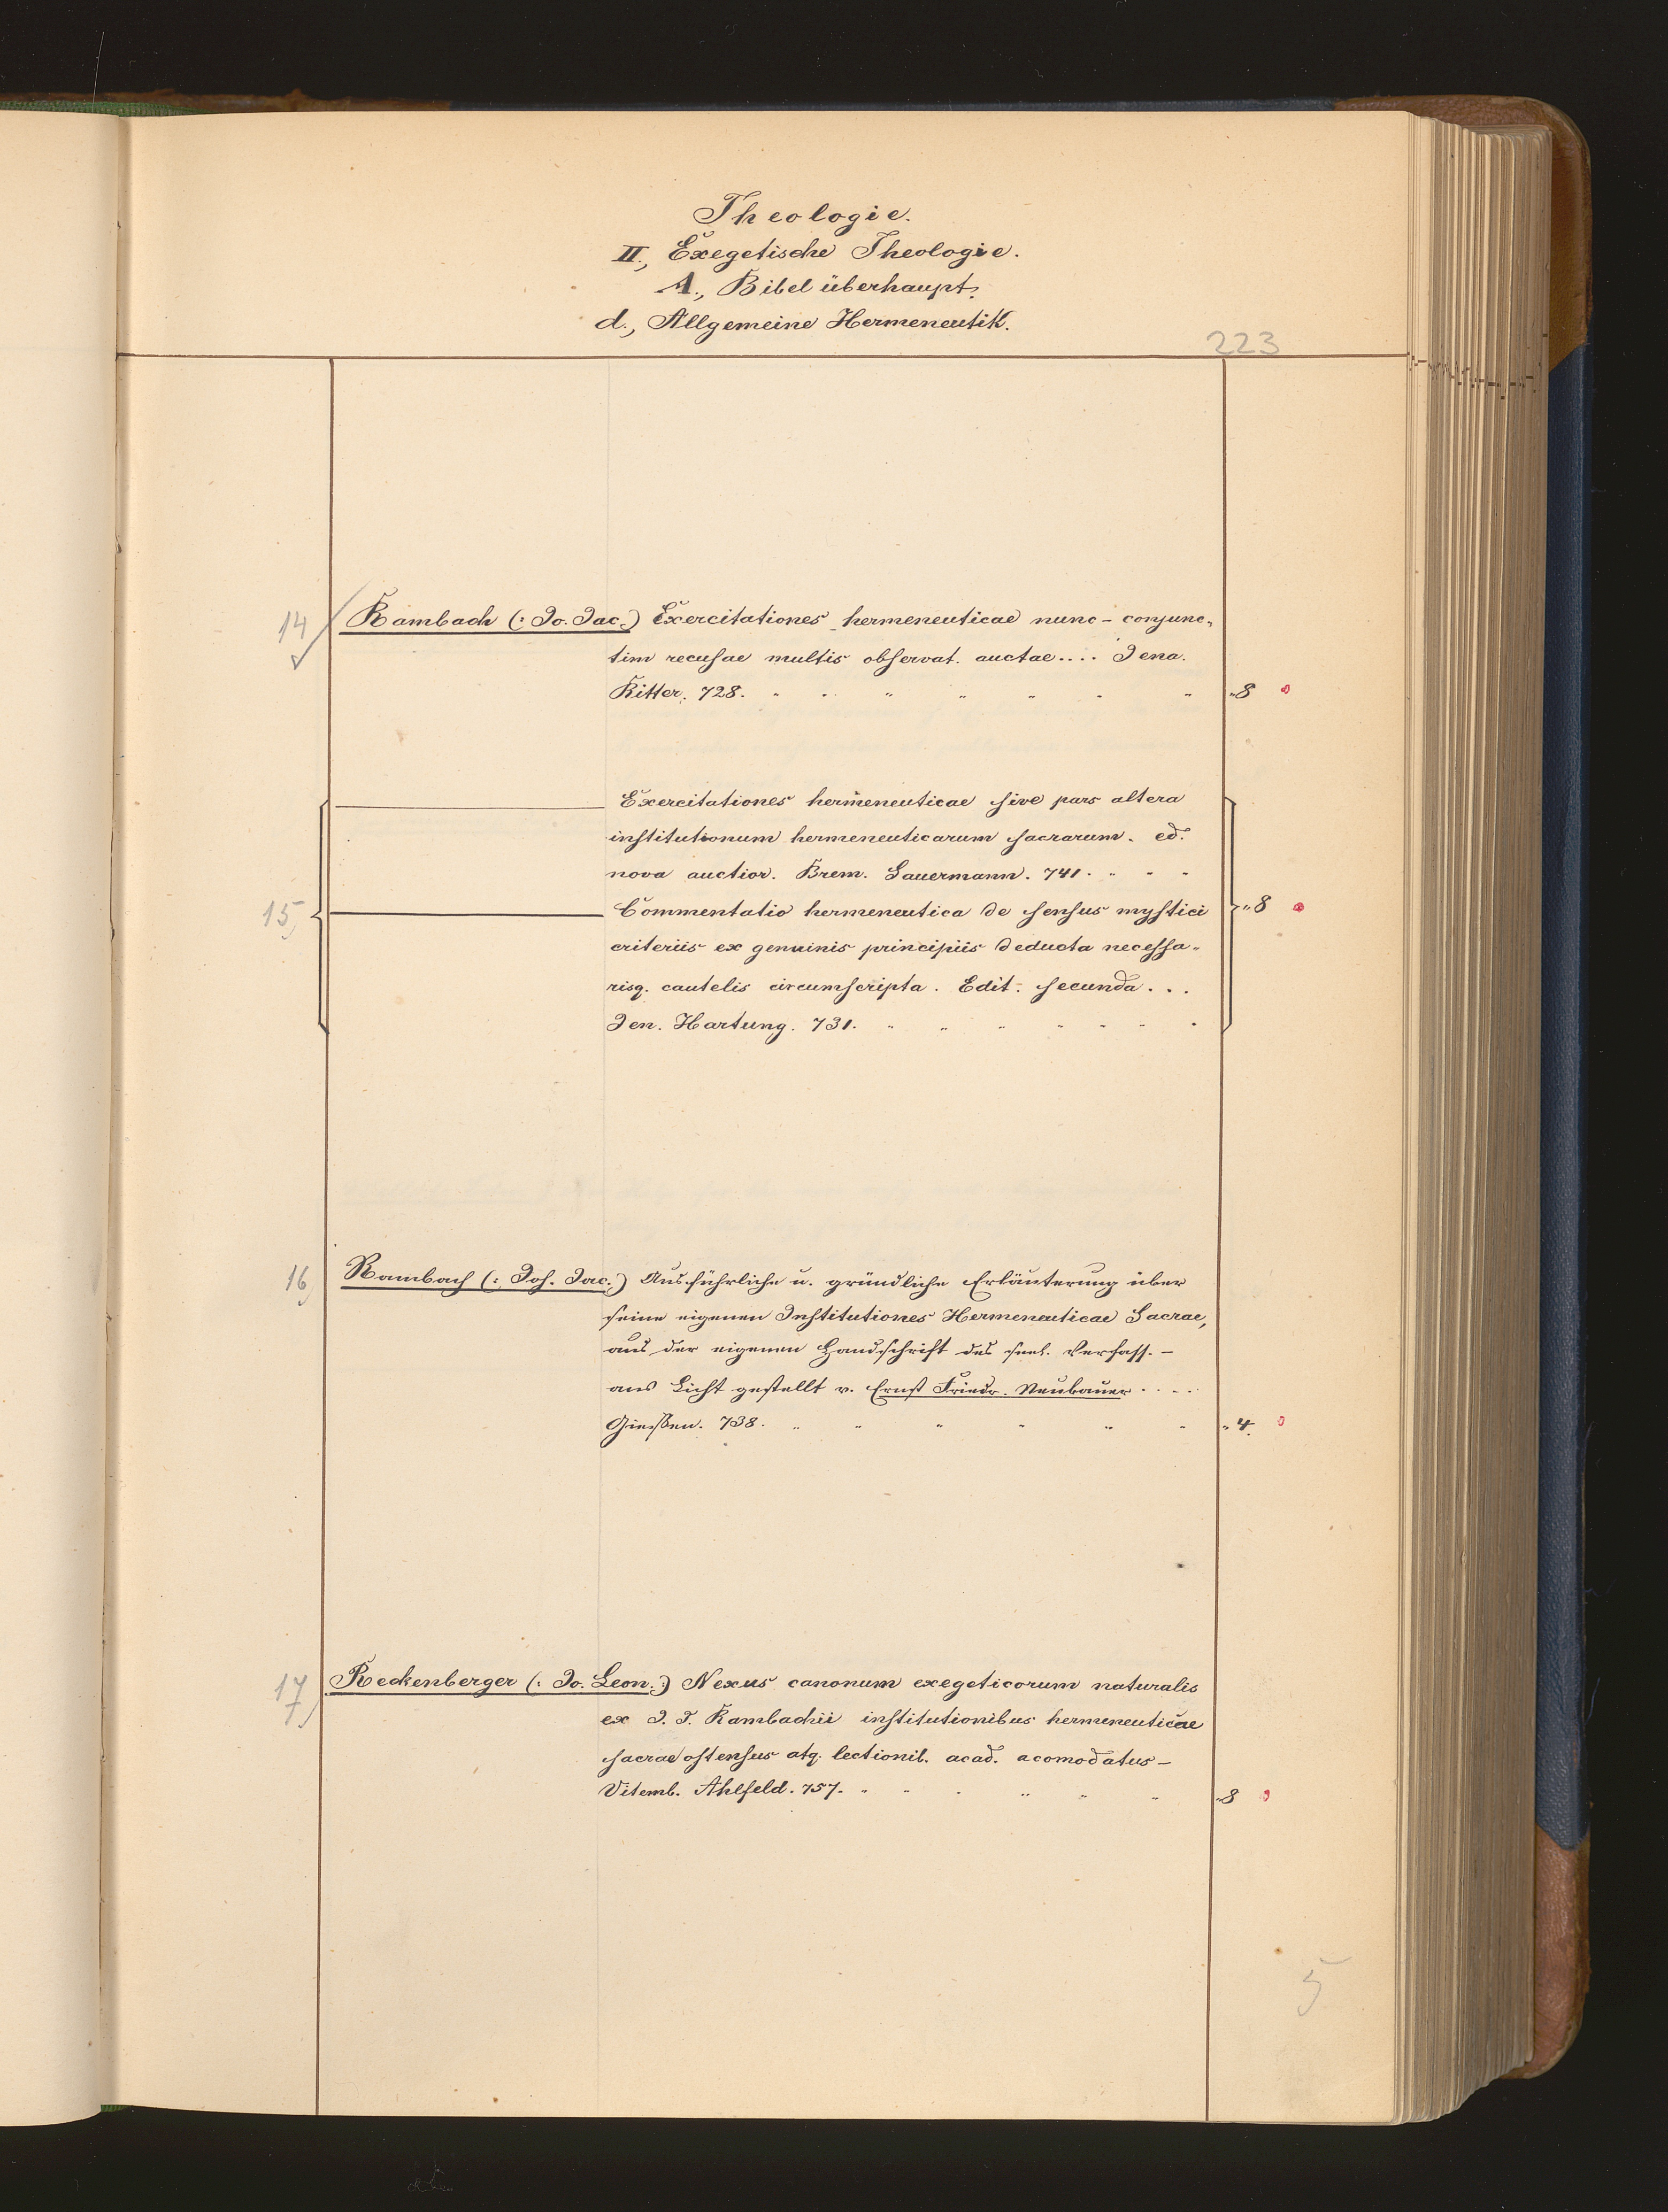 Theologie.
II., Exegetische Theologie.
A., Bibel überhaupt.
d., Allgemeine Hermeneutik.
223
14 Rambach (: Jo. Jac.) Exercitationes hermeneuticae nunc - conjunc-
tim recusae multis observat. auctae.... Jena.
Ritter. 728. „8
Exercitationes hermeneuticae sive pars altera
institutionum hermeneuticarum sacrarum. ed.
nova auctior. Brem. Sauermann. 741.
15, Commentatio hermeneutica de sensus mystici „8
criteriis ex genuinis principiis deducta necessa-
risq. cautelis circumscripta. Edit. secunda...
Jen. Hartung. 731.
16) Rambach (: Joh. Jac.:) Ausführliche u. gründliche Erläuterung über
seine eigenen Institutiones Hermeneuticae Sacrae,
aus der eigenen Handschrift des seel. Verfass. -
ans Licht gestellt v. Ernst Friedr. Neubauer....
Giessen. 738. „4.
17) Reckenberger (: Jo. Leon.:) Nexus canonum exegeticorum naturalis
ex J. J. Rambachii institutionibus hermeneuticae
sacrae ostensus atq. lectionib. acad. acomodatus -
Vitemb. Ahlfeld. 757. „8
5